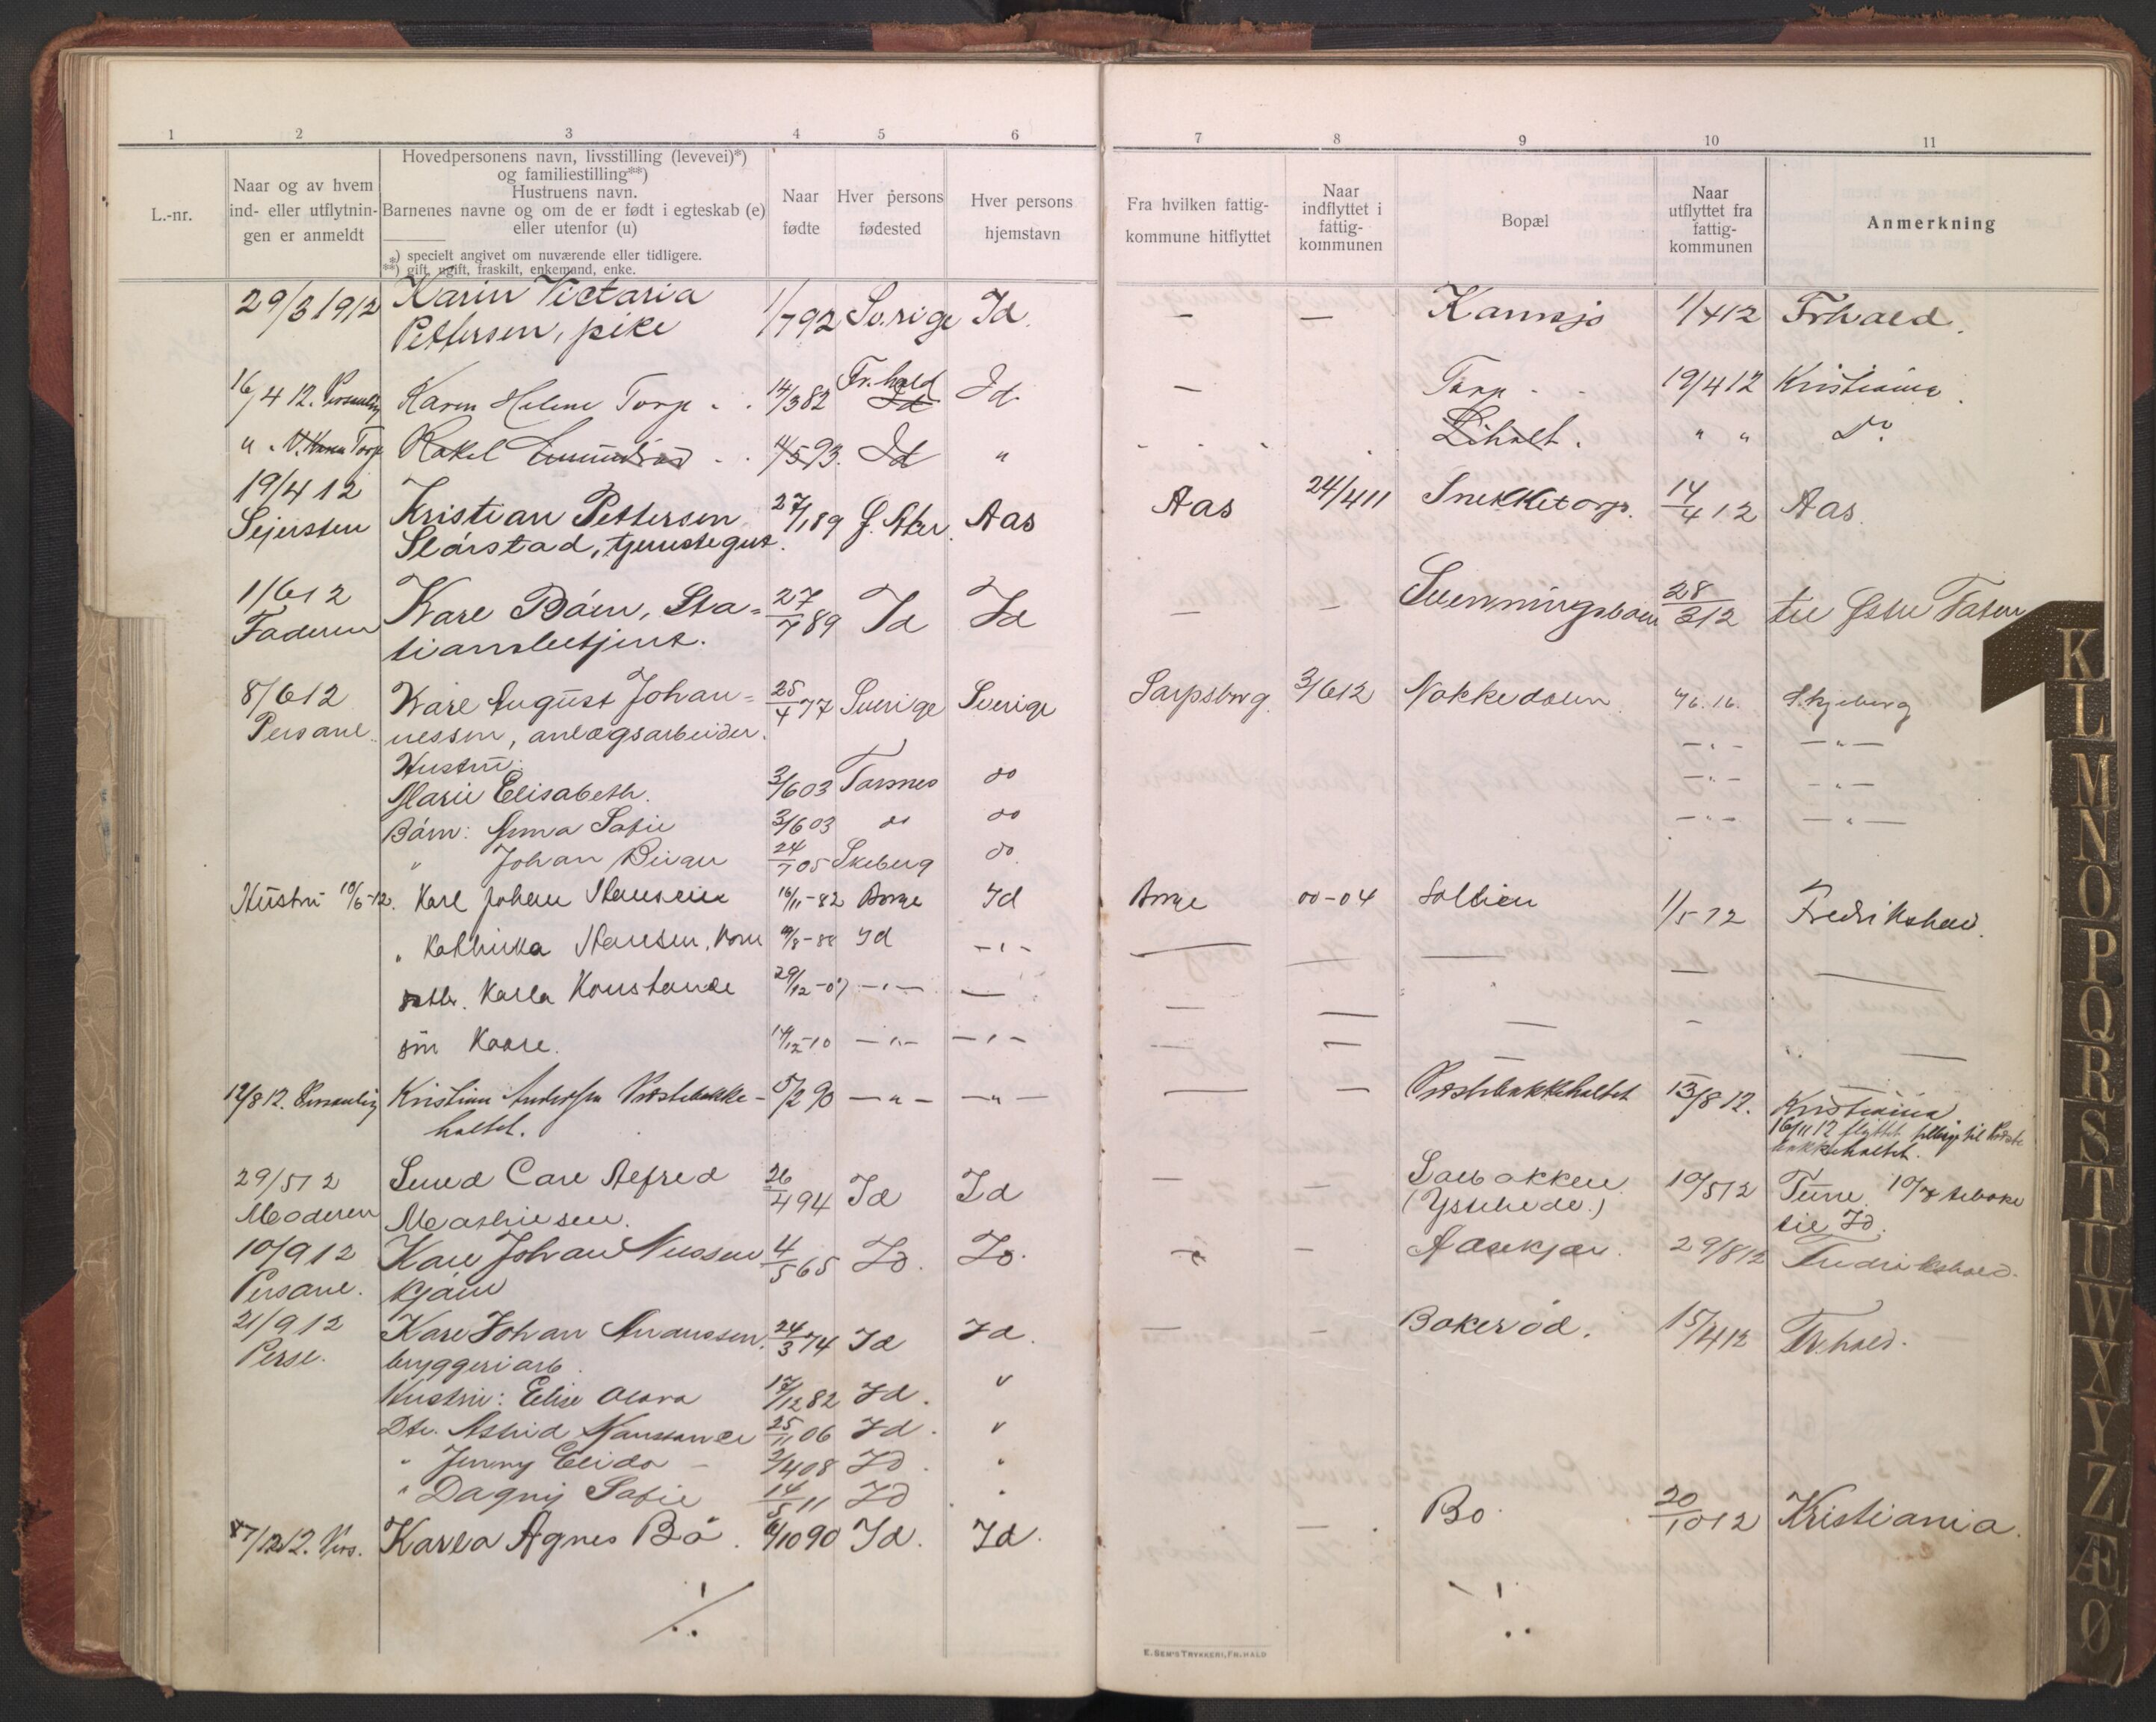 1 2 3 4 5 6 7 8 9 10 11
L.-nr.
Naar og av hvem
ind- eller utflytnin-
gen er anmeldt
Hovedpersonens navn, livsstilling (levevei)*)
og familiestilling**)
Hustruens navn.
Barnenes navne og om de er født i egteskab (e)
eller utenfor (u)
*) specielt angivet om nuværende eller tidligere.
**) gift, ugift, fraskilt, enkemand, enke.
Naar
fødte
Hver persons
fødested
Hver persons
hjemstavn
Fra hvilken fattig-
kommune hitflyttet
Naar
indflyttet i
fattig-
kommunen
Bopæl
Naar
utflyttet fra
fattig-
kommunen
Anmerkning
29/3 1912 Karin Victoria
Pettersen, pike 1/7 92 Sverige Id. — — Kornsjø 1/4 12 Frhald.
16/4 12. Personlig Karen Helene Torp 14/3 82 Fr.hald Id Id. — Torp 19/4 12 Kristiania.
" V. Karen Torp Rakel 4/5 93. Id " Liholt. " " Do.
19/4 12
Sejersten Kristian Pettersen 27/1 89 Aas Aas 24/4 11 Snekketorp. 14/4 12 Aas.
Slørstad, tjenestegut.
1/6 12
Faderen Karl Böen, Sta= 27/7 89 Id Id — — Svenningsbøen 28/3 12 til Østre Toten
tionsbetjent.
8/6 12
Personl. Karl August Johan= 25/4 77 Sverige Sverige Sarpsborg. 3/6 12 Nokkedalen 4/6. 16. Skjeberg
nessen, anlægsarbeider. — " — — " —
Hustru:
Marie Elisabeth. 3/6 03 do — " — — " —
Børn: Anna Sofie 3/6 03 do do — " — — " —
" Johan Birger 24/7 05 Skeberg do
Hustru 10/6-12. Karl Johan Hansen 16/11-82 Borge Id Borge 00-04 1/5-12 Fredrikshald.
" Kathinka Hansen, 9/8-88 Id — " — — — — — —
dtr. Karla Konstanse 29/12-07 — " — — — — — —
søn Kaare. 14/12-10 — " — — " — — — — —
12/8 12. Personlig Kristian Andersen Prestebakke- 5/2 90 — " — — " — — — Prestebakkeholtet 13/8 12. Kristiania.
holtet. 16/11 12 flyttet tilbage til Preste
bakkeholtet.
29/5 12
Moderen Svend Carl Alfred 26/4 94 Id Id — — Solbakken 10/5 12 Tune. 10/7 tilbake
Mathiesen. (Ystehede.) til Id.
10/9 12
Personl. Karl Johan Nilssen 4/5 65 Id. Id. — — Aasekjær. 29/8 12 Fredrikshald.
Kjöen
21/9 12
Persl. Karl Johan Andersen. 24/3 74 Id Id. — — Bokerød. 15/4 12 Fr.hald.
bryggeriarb.
Hustru: Elise Olava 17/12 82 Id. "
Dtr. Astrid 25/11 06 Id. "
" Jenny Elida 2/4 08 Id. "
" Dagny Sofie 14/5 11 Id. "
7/12 12. Pers. Karla Agnes Bö. 6/10 90 Id. Id. — Bø 20/10 12 Kristiania.
E. SEM'S TRYKKERI, FR.HALD
K
L
M
N
O
P
Q
R
S
T
U
W
X
Y
Z
Æ
Ø